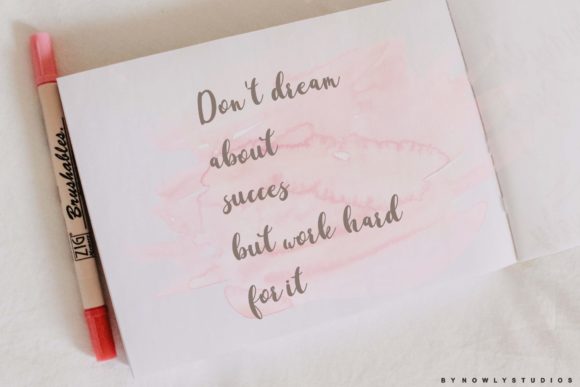 Don't dream
about
succes
but work hard
for it
ZIG
Brushables
BYNOWLYSTUDIOS